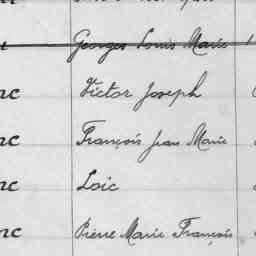 Georges Louis Marie
nc Victor Joseph
nc François Jean Marie
nc Loïc
nc Pierre Marie François